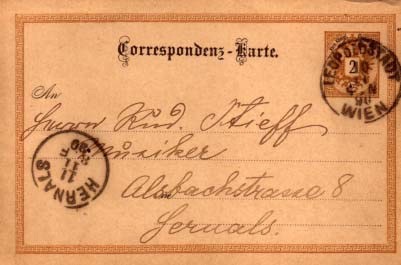 Correspondenz-Karte.
2
LEOPOLDSTADT
WIEN
90
An
Herrn Rud. Stieff
Musiker
Alsbachstrasse 8
Hernals.
HERNALS
11
F
90